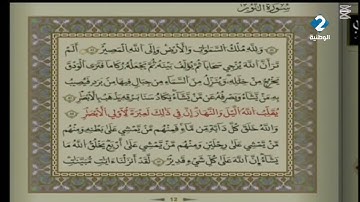 سُورَةُ النُّورِ
2
الوطنية
وَلِلَّهِ مُلْكُ السَّمَٰوَٰتِ وَالْأَرْضِ وَإِلَى اللَّهِ الْمَصِيرُ أَلَمْ
تَرَ أَنَّ اللَّهَ يُزْجِي سَحَابًا ثُمَّ يُؤَلِّفُ بَيْنَهُ ثُمَّ يَجْعَلُهُ رُكَامًا فَتَرَى الْوَدْقَ
يَخْرُجُ مِنْ خِلَٰلِهِ وَيُنَزِّلُ مِنَ السَّمَاءِ مِن جِبَالٍ فِيهَا مِن بَرَدٍ فَيُصِيبُ
بِهِ مَن يَشَاءُ وَيَصْرِفُهُ عَن مَّن يَشَاءُ يَكَادُ سَنَا بَرْقِهِ يَذْهَبُ بِالْأَبْصَٰرِ
يُقَلِّبُ اللَّهُ الَّيْلَ وَالنَّهَارَ إِنَّ فِي ذَٰلِكَ لَعِبْرَةً لِّأُولِي الْأَبْصَٰرِ
وَاللَّهُ خَلَقَ كُلَّ دَابَّةٍ مِّن مَّاءٍ فَمِنْهُم مَّن يَمْشِي عَلَىٰ بَطْنِهِ وَمِنْهُم
مَّن يَمْشِي عَلَىٰ رِجْلَيْنِ وَمِنْهُم مَّن يَمْشِي عَلَىٰ أَرْبَعٍ يَخْلُقُ اللَّهُ مَا
يَشَاءُ إِنَّ اللَّهَ عَلَىٰ كُلِّ شَيْءٍ قَدِيرٌ لَّقَدْ أَنزَلْنَا ءَايَٰتٍ مُّبَيِّنَٰتٍ
12